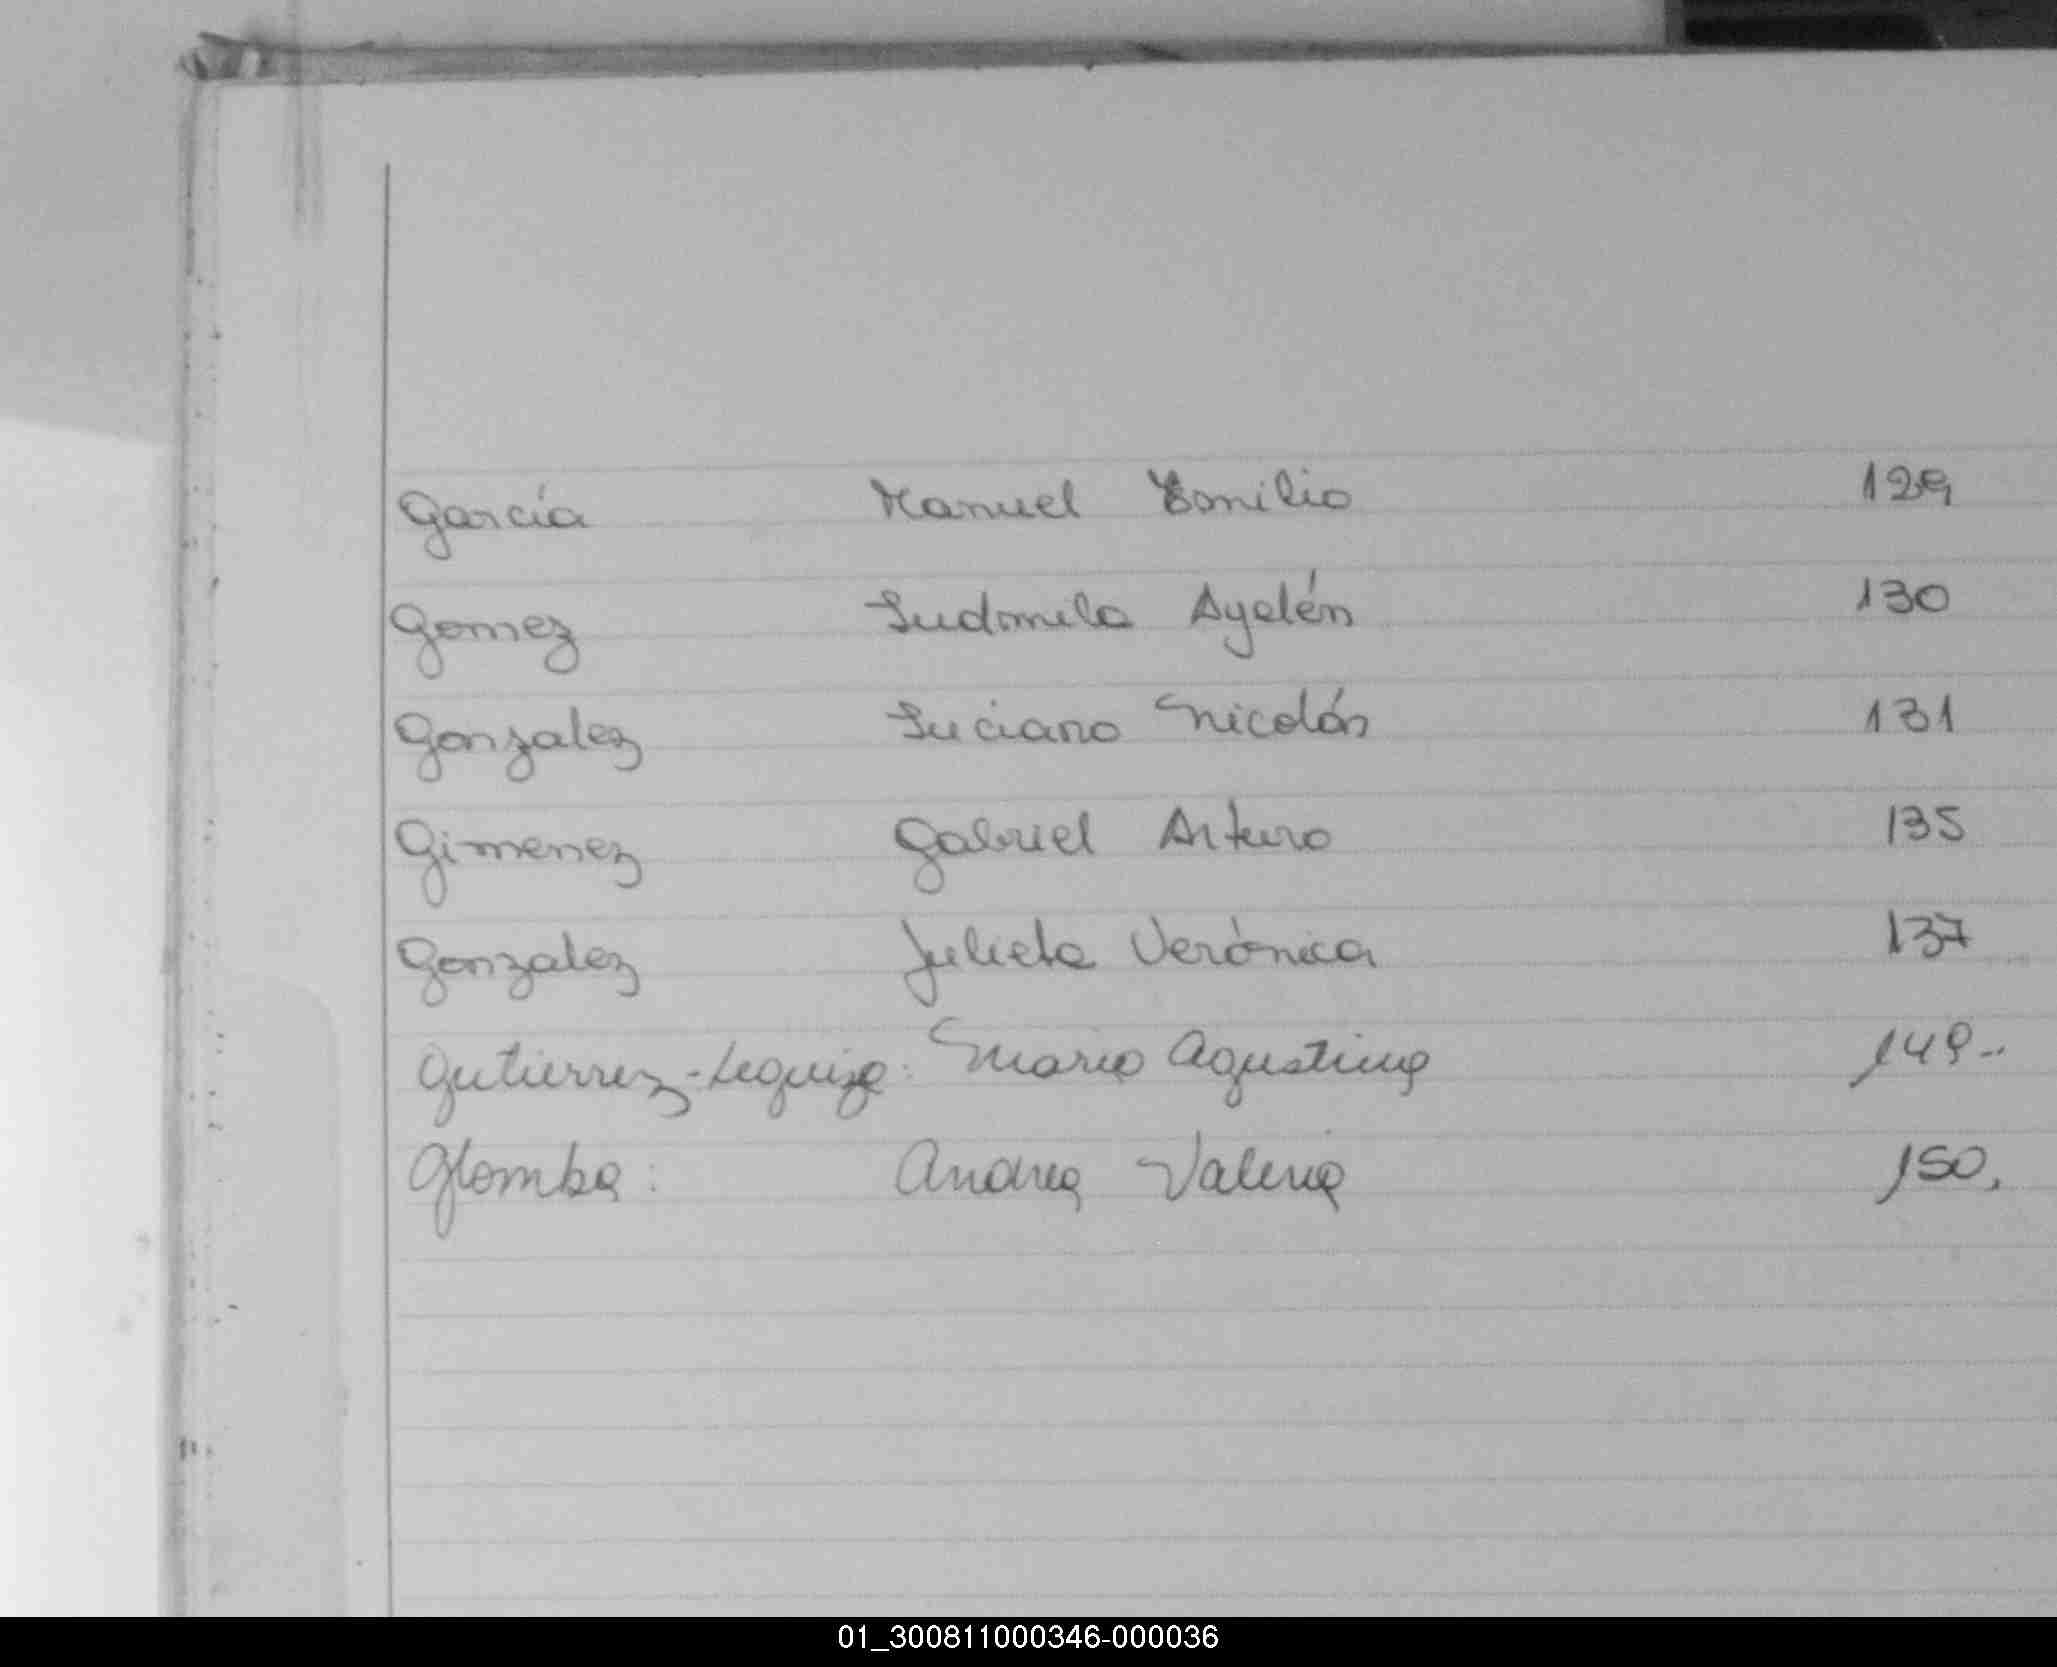 García Manuel Emilio 129
Gomez Ludmila Ayelén 130
Gonzalez Luciano Nicolás 131
Gimenez Gabriel Arturo 135
Gonzalez Julieta Verónica 137
Gutierrez-Leguiza: Maria Agustina 149--
Glomba: Andrea Valeria 150,
01_300811000346-000036